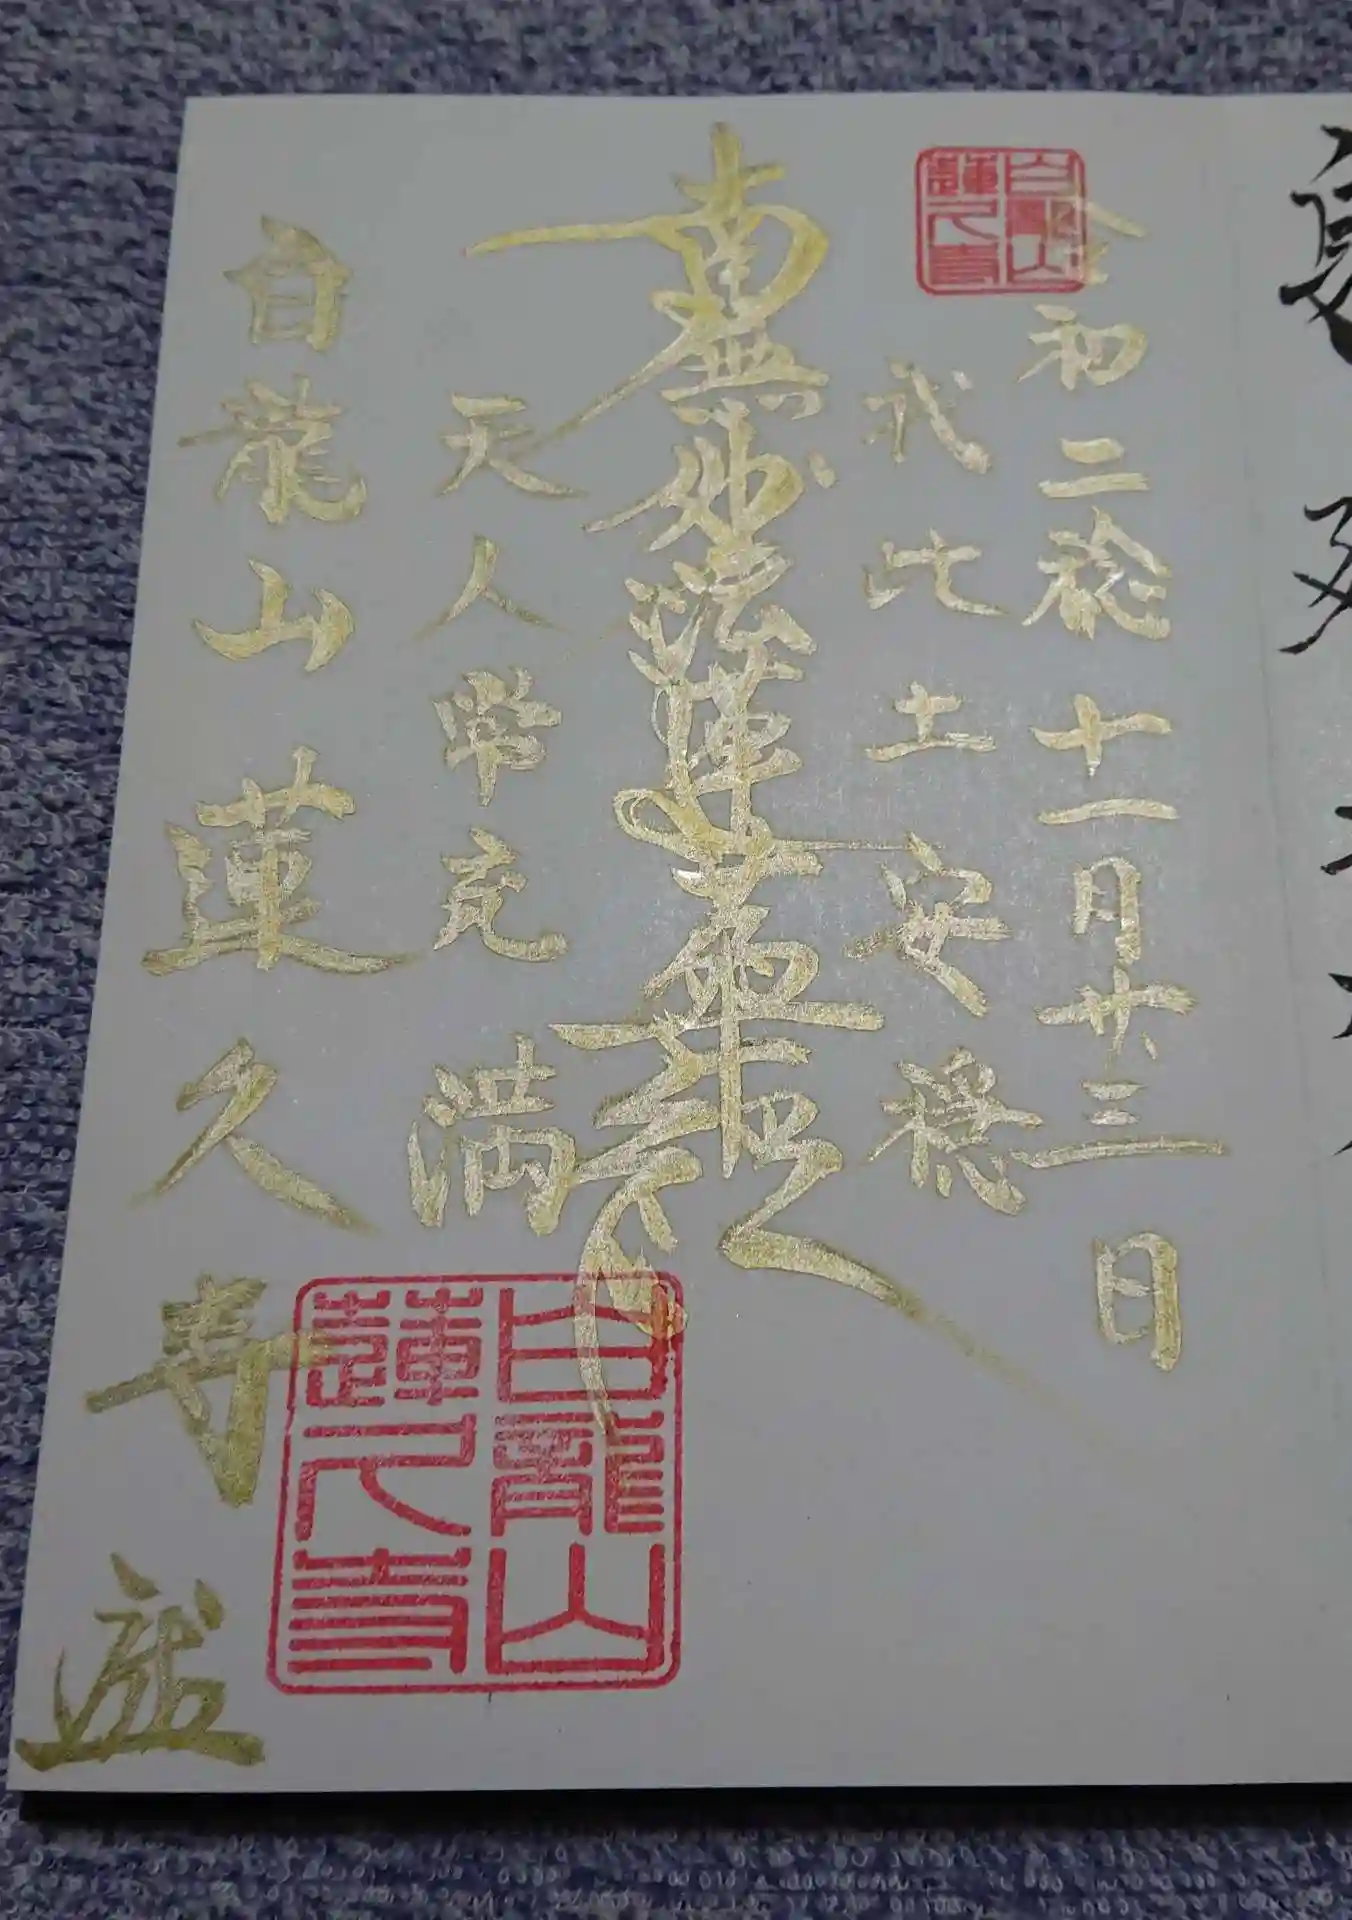 白龍山
蓮久寺
令和二稔十一月廿三日
我此土安穏
南無妙法蓮華経
天人常充満
白龍山蓮久寺
白龍山
蓮久寺